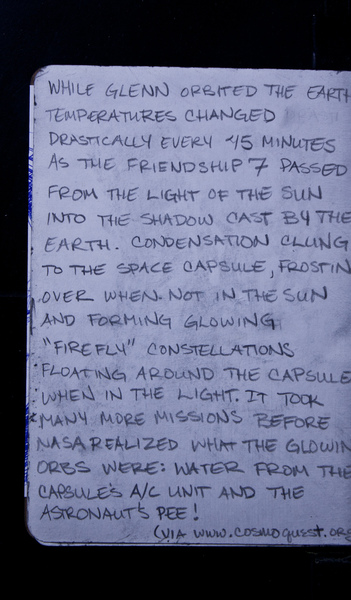 WHILE GLENN ORBITED THE EARTH
TEMPERATURES CHANGED
DRASTICALLY EVERY 45 MINUTES
AS THE FRIENDSHIP 7 PASSED
FROM THE LIGHT OF THE SUN
INTO THE SHADOW CAST BY THE
EARTH. CONDENSATION CLUNG
TO THE SPACE CAPSULE, FROSTIN
OVER WHEN NOT IN THE SUN
AND FORMING GLOWING
"FIREFLY" CONSTELLATIONS
FLOATING AROUND THE CAPSULE
WHEN IN THE LIGHT. IT TOOK
MANY MORE MISSIONS BEFORE
NASA REALIZED WHAT THE GLOWIN
ORBS WERE: WATER FROM THE
CAPSULE'S A/C UNIT AND THE
ASTRONAUT'S PEE!
(VIA WWW.COSMOQUEST.ORG